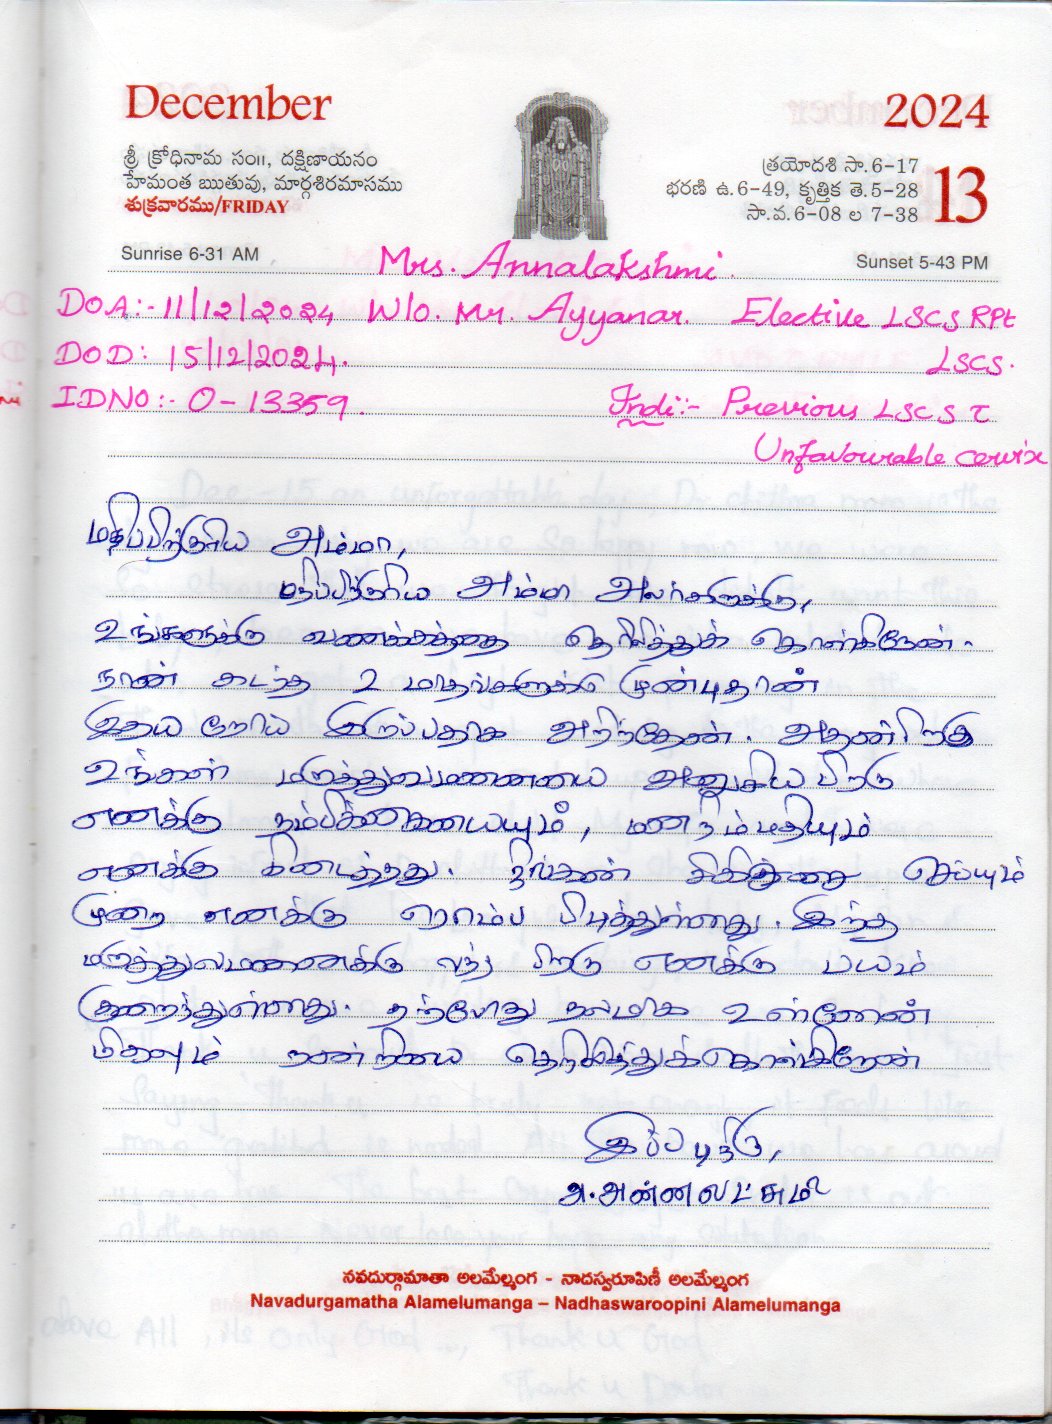 December
2024
శ్రీ క్రోధినామ సం॥, దక్షిణాయనం
హేమంత ఋతువు, మార్గశిరమాసము
శుక్రవారము/FRIDAY
త్రయోదశి సా.6-17
భరణి ఉ.6-49, కృత్తిక తె.5-28
సా.వ.6-08 ల 7-38
13
Sunrise 6-31 AM
Sunset 5-43 PM
Mrs. Annalakshmi.
DOA:- 11/12/2024 W/o. Mr. Ayyanar. Elective LSCS RPt
DOD: 15/12/2024. LSCS.
IDNO:- O-13359. Indi:- Previous LSCS c
Unfavourable cervix
மதிப்பிற்குரிய அம்மா,
மதிப்பிற்குரிய அம்மா அவர்களுக்கு,
உங்களுக்கு வணக்கத்தை தெரிவித்துக் கொள்கிறேன்.
நான் கடந்த 2 மாதங்களுக்கு முன்புதான்
இதய நோய் இருப்பதாக அறிந்தேன். அதன்பிறகு
உங்கள் மருத்துவமணையை அனுகிய பிறகு
எனக்கு நம்பிக்கையையும், மனநிம்மதியும்
எனக்கு கிடைத்தது. நீங்கள் சிகிச்சை செய்யும்
முறை எனக்கு ரொம்ப பிடித்துள்ளது. இந்த
மருத்துவமனைக்கு வந்த பிறகு எனக்கு பயம்
குறைந்துள்ளது. தற்போது நலமாக உள்ளேன்
மிகவும் நன்றியை தெரிவித்துக்கொள்கிறேன்
இப்படிக்கு,
அ.அன்னலட்சுமி
నవదుర్గామాతా అలమేల్మంగ - నాదస్వరూపిణీ అలమేల్మంగ
Navadurgamatha Alamelumanga – Nadhaswaroopini Alamelumanga